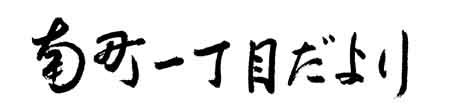 南町一丁目だより